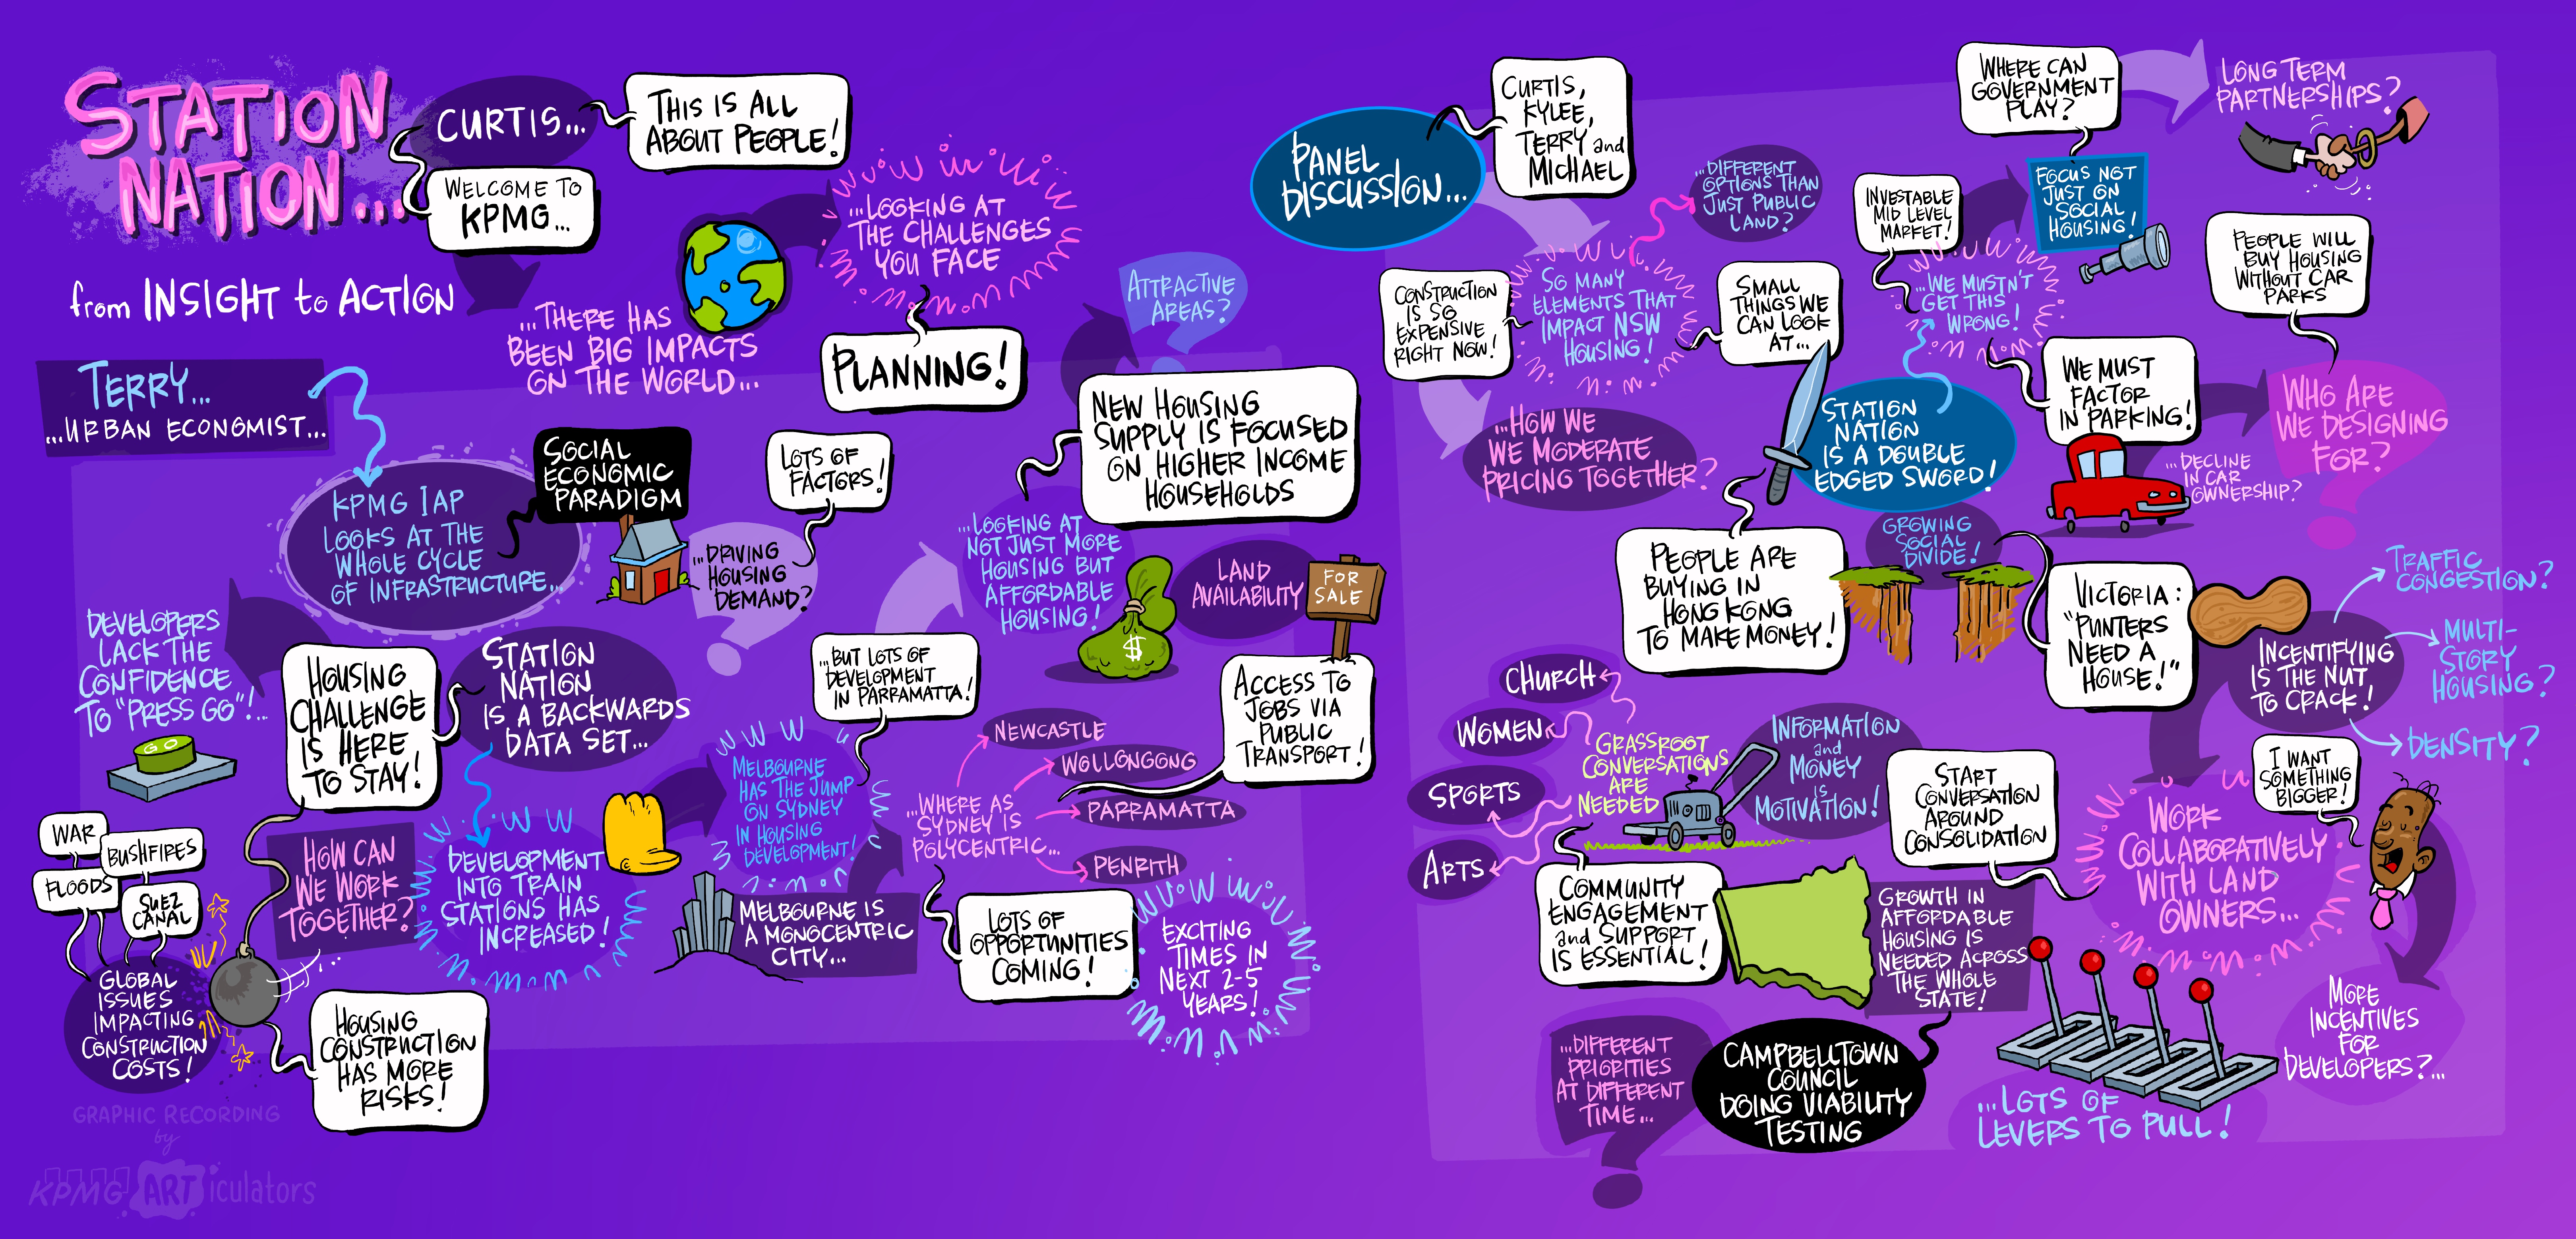 STATION
NATION...
from INSIGHT to ACTION
CURTIS...
THIS IS ALL
ABOUT PEOPLE!
WELCOME TO
KPMG...
...THERE HAS
BEEN BIG IMPACTS
ON THE WORLD...
...LOOKING AT
THE CHALLENGES
YOU FACE
PLANNING!
TERRY...
...URBAN ECONOMIST...
KPMG IAP
LOOKS AT THE
WHOLE CYCLE
OF INFRASTRUCTURE...
SOCIAL
ECONOMIC
PARADIGM
LOTS OF
FACTORS!
...DRIVING
HOUSING
DEMAND?
DEVELOPERS
LACK THE
CONFIDENCE
TO "PRESS GO"!...
GO
HOUSING
CHALLENGE
IS HERE
TO STAY!
STATION
NATION
IS A BACKWARDS
DATA SET...
WAR
BUSHFIRES
FLOODS
SUEZ
CANAL
GLOBAL
ISSUES
IMPACTING
CONSTRUCTION
COSTS!
HOW CAN
WE WORK
TOGETHER?
HOUSING
CONSTRUCTION
HAS MORE
RISKS!
DEVELOPMENT
INTO TRAIN
STATIONS HAS
INCREASED!
MELBOURNE
HAS THE JUMP
ON SYDNEY
IN HOUSING
DEVELOPMENT!
MELBOURNE IS
A MONOCENTRIC
CITY...
...BUT LOTS OF
DEVELOPMENT
IN PARRAMATTA!
...WHERE AS
SYDNEY IS
POLYCENTRIC...
NEWCASTLE
WOLLONGONG
PARRAMATTA
PENRITH
LOTS OF
OPPORTUNITIES
COMING!
EXCITING
TIMES IN
NEXT 2-5
YEARS!
...LOOKING AT
NOT JUST MORE
HOUSING BUT
AFFORDABLE
HOUSING!
$
ATTRACTIVE
AREAS?
NEW HOUSING
SUPPLY IS FOCUSED
ON HIGHER INCOME
HOUSEHOLDS
LAND
AVAILABILITY
FOR
SALE
ACCESS TO
JOBS VIA
PUBLIC
TRANSPORT!
GRAPHIC RECORDING
by
KPMG ARTiculators
PANEL
DISCUSSION...
CURTIS,
KYLEE,
TERRY and
MICHAEL
...DIFFERENT
OPTIONS THAN
JUST PUBLIC
LAND?
CONSTRUCTION
IS SO
EXPENSIVE
RIGHT NOW!
SO MANY
ELEMENTS THAT
IMPACT NSW
HOUSING!
SMALL
THINGS WE
CAN LOOK
AT...
...HOW WE
WE MODERATE
PRICING TOGETHER?
STATION
NATION
IS A DOUBLE
EDGED SWORD!
...WE MUSTN'T
GET THIS
WRONG!
INVESTABLE
MID LEVEL
MARKET!
FOCUS NOT
JUST ON
SOCIAL
HOUSING!
WHERE CAN
GOVERNMENT
PLAY?
LONG TERM
PARTNERSHIPS?
WE MUST
FACTOR
IN PARKING!
...DECLINE
IN CAR
OWNERSHIP?
PEOPLE WILL
BUY HOUSING
WITHOUT CAR
PARKS
WHO ARE
WE DESIGNING
FOR?
PEOPLE ARE
BUYING IN
HONG KONG
TO MAKE MONEY!
GROWING
SOCIAL
DIVIDE!
VICTORIA:
"PUNTERS
NEED A
HOUSE!"
INCENTIFYING
IS THE NUT
TO CRACK!
TRAFFIC
CONGESTION?
MULTI-
STORY
HOUSING?
DENSITY?
CHURCH
WOMEN
SPORTS
ARTS
GRASSROOT
CONVERSATIONS
ARE
NEEDED
INFORMATION
and
MONEY
IS
MOTIVATION!
COMMUNITY
ENGAGEMENT
and SUPPORT
IS ESSENTIAL!
START
CONVERSATION
AROUND
CONSOLIDATION
WORK
COLLABORATIVELY
WITH LAND
OWNERS...
I WANT
SOMETHING
BIGGER!
MORE
INCENTIVES
FOR
DEVELOPERS?...
GROWTH IN
AFFORDABLE
HOUSING IS
NEEDED ACROSS
THE WHOLE
STATE!
CAMPBELLTOWN
COUNCIL
DOING VIABILITY
TESTING
...DIFFERENT
PRIORITIES
AT DIFFERENT
TIME...
...LOTS OF
LEVERS TO PULL!